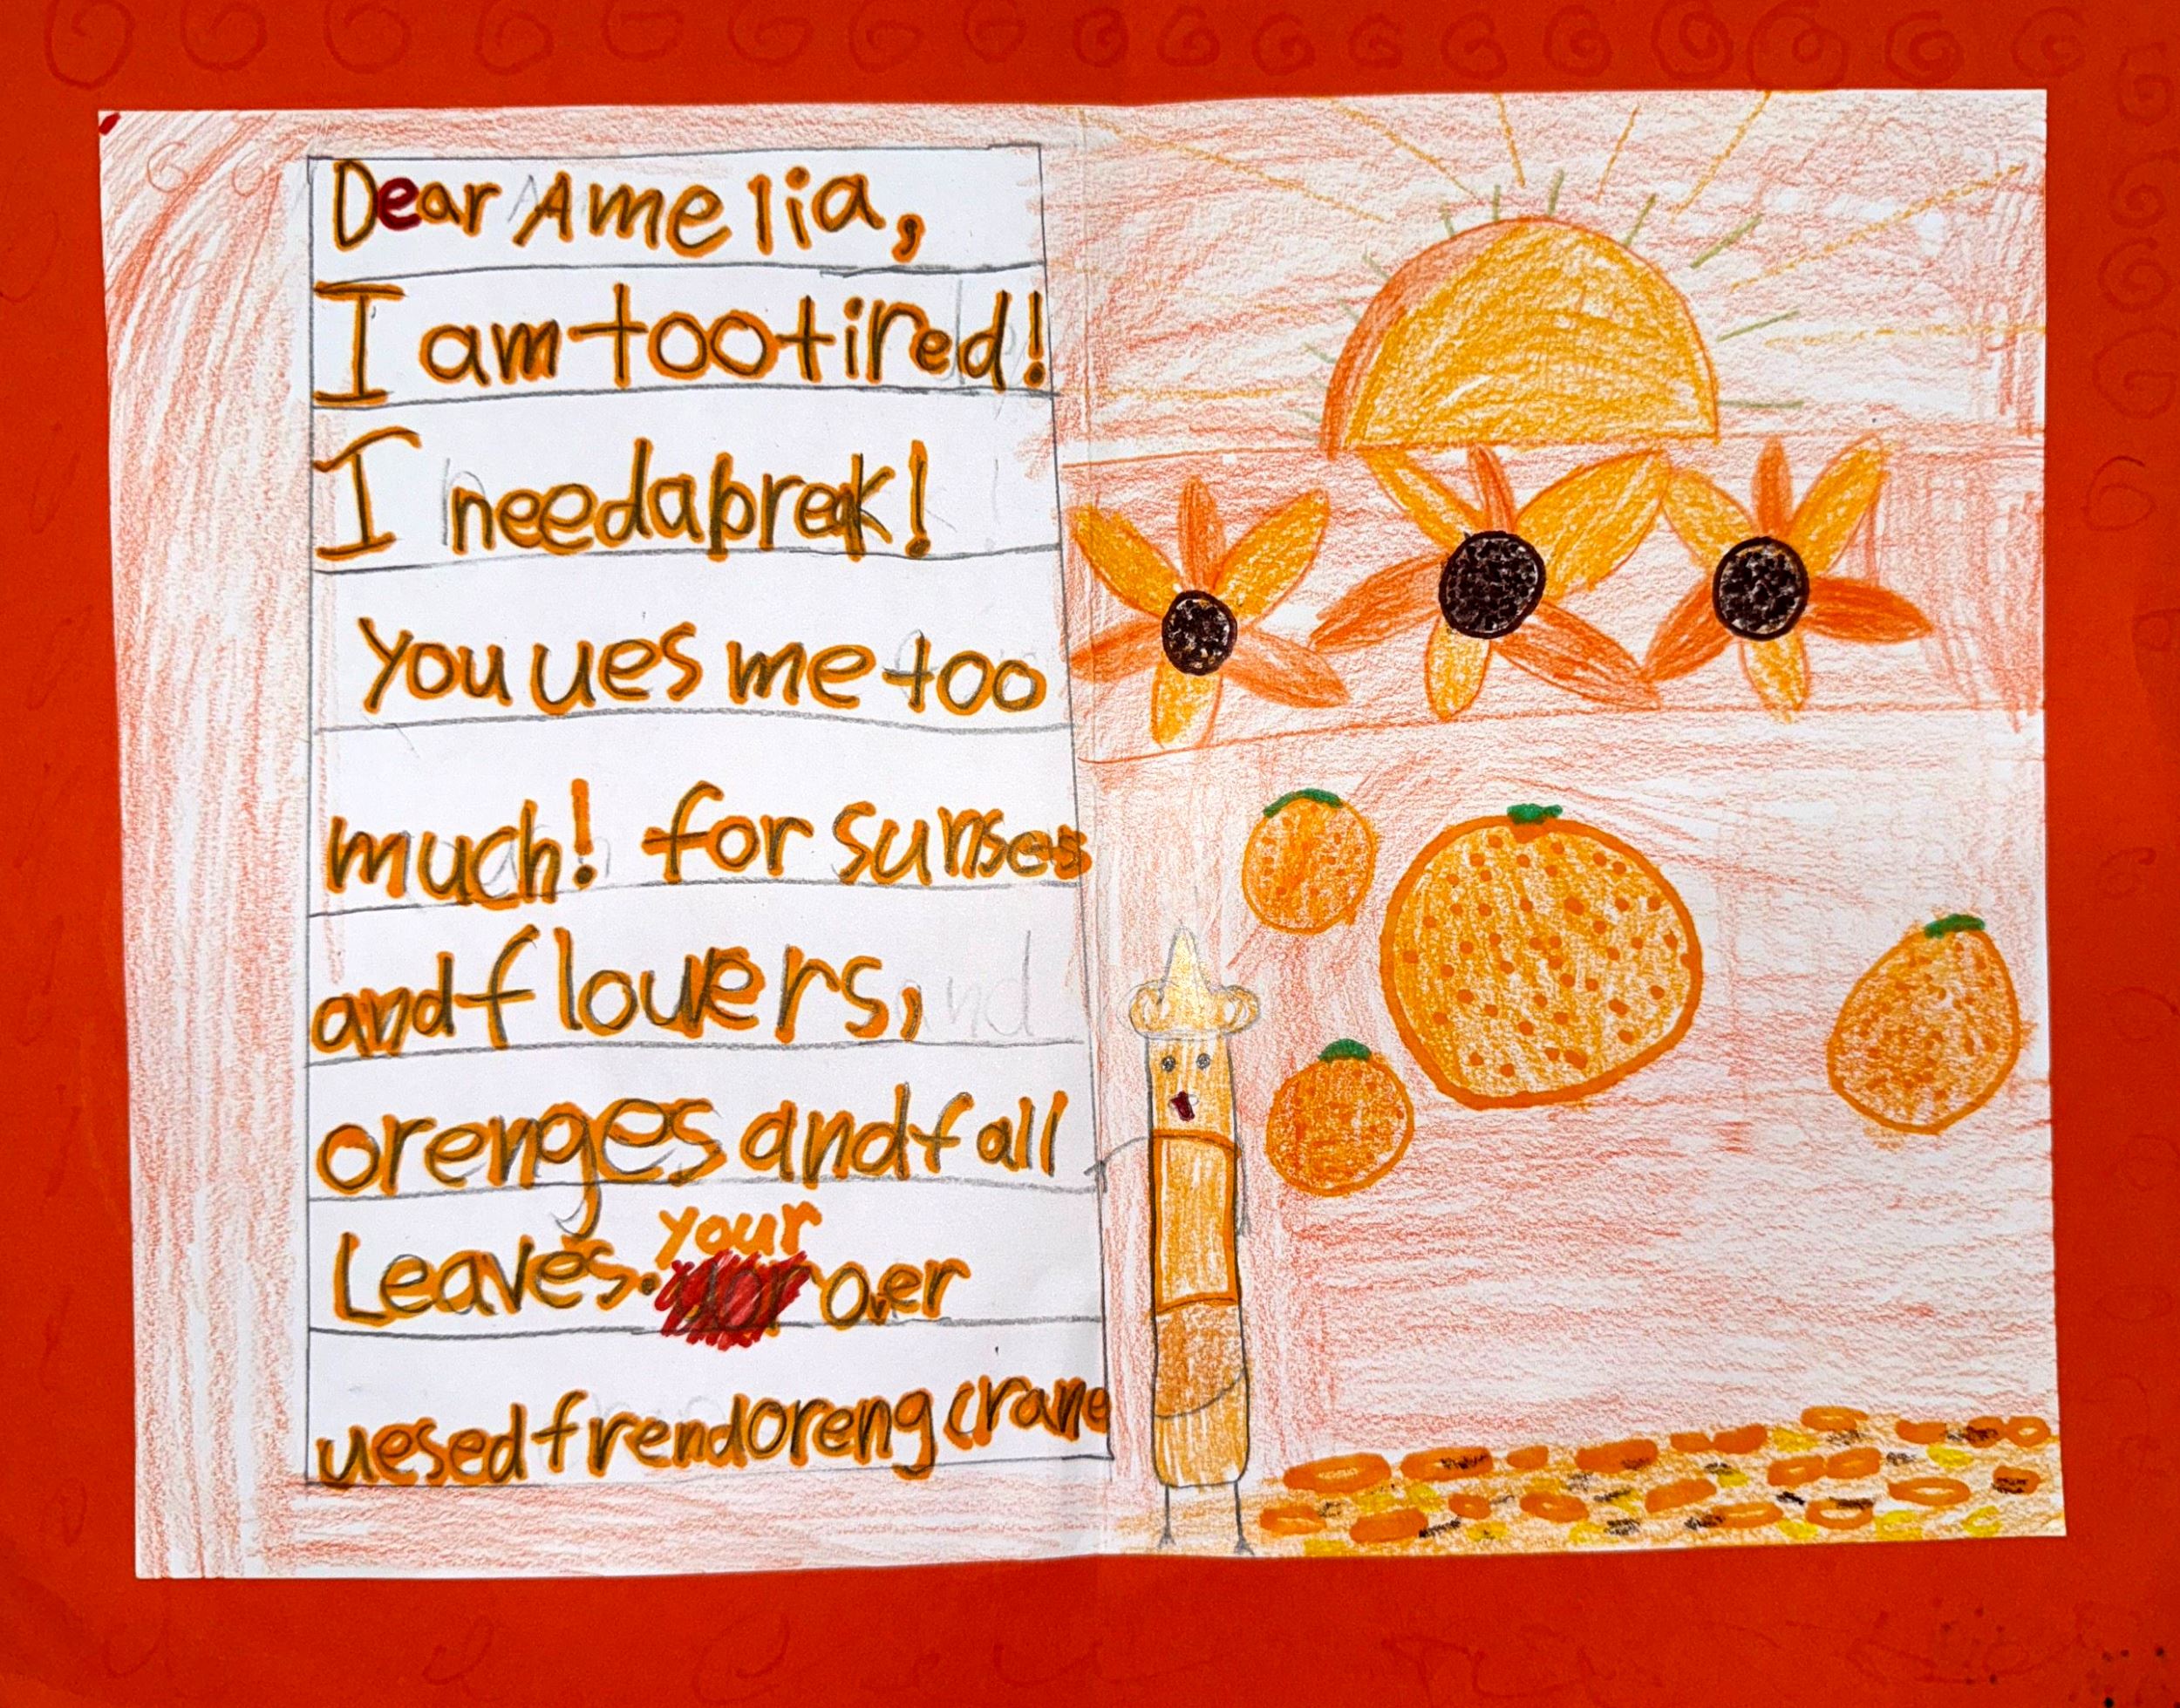 Dear Amelia,
I am too tired!
I need a break!
you ues me too
much! for sunses
and flouers,
orenges and fall
Leaves. your over
uesed frend oreng crane